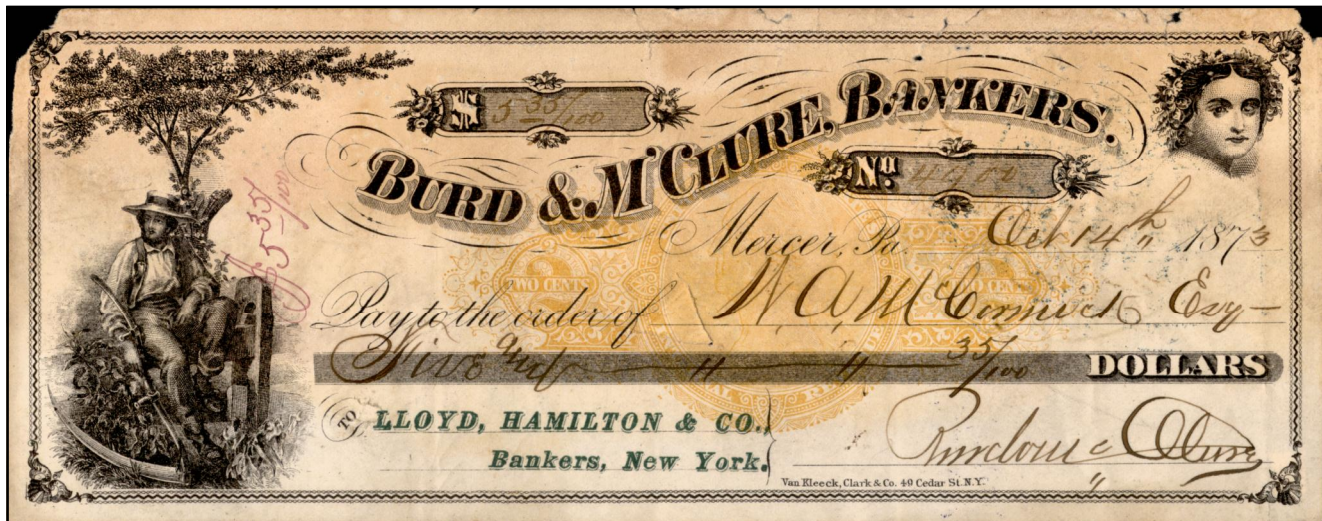 $ 5 35/100
BURD & McCLURE, BANKERS.
No.
$5 35/100
Mercer, Pa. Oct 14th 1873
TWO CENTS TWO CENTS
Pay to the order of W. A. McCormick Esq
Five and " " 35/100 DOLLARS
TO LLOYD, HAMILTON & CO.,
Bankers, New York.
Van Kleeck, Clark & Co. 49 Cedar St. N.Y.